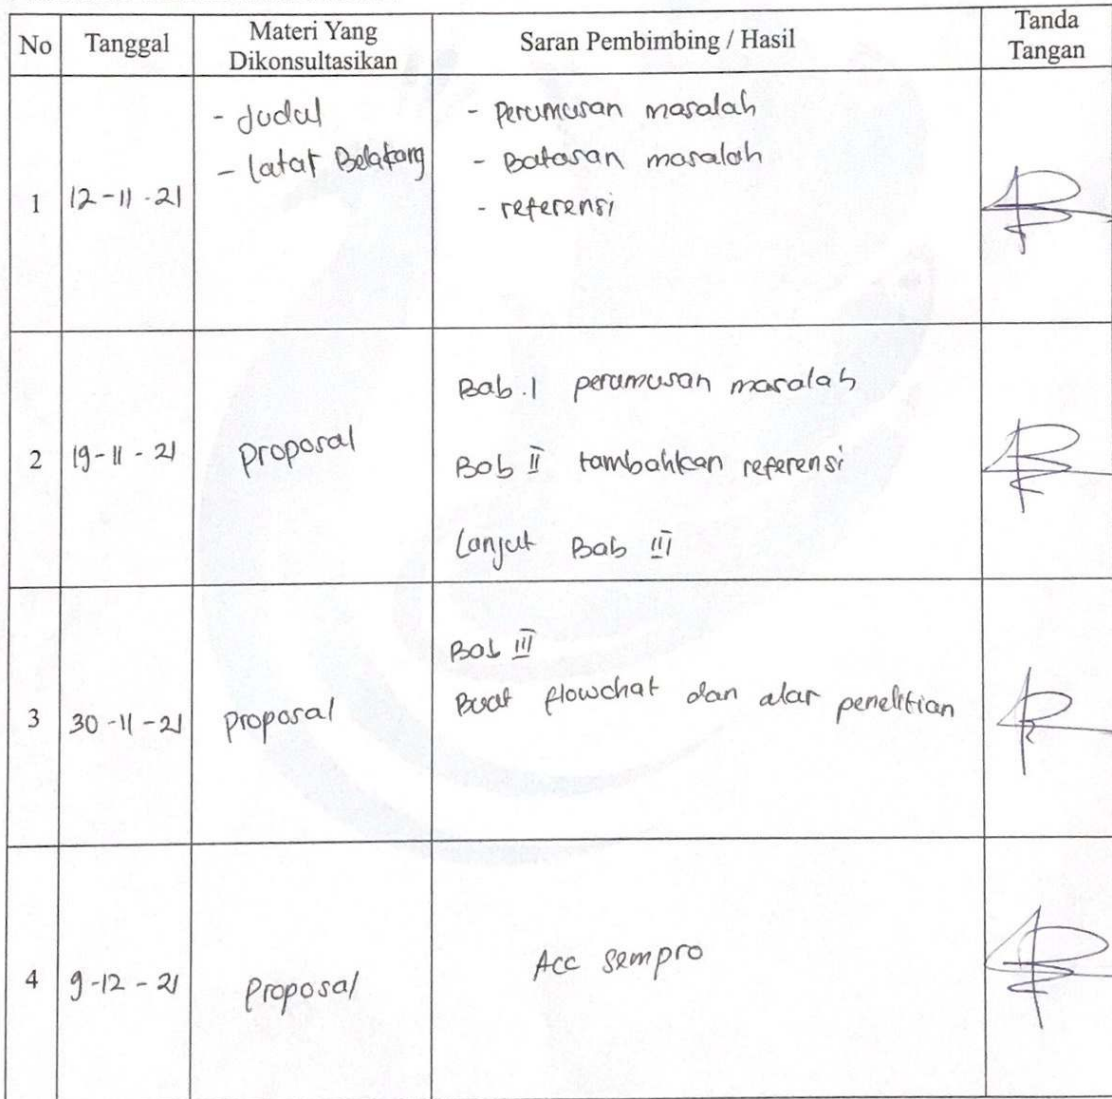 No
Tanggal
Materi Yang
Dikonsultasikan
Saran Pembimbing / Hasil
Tanda
Tangan
1
12-11-21
- Judul
- latar Belakang
- Perumusan masalah
- Batasan masalah
- referensi
2
19-11-21
Proposal
Bab.I perumusan masalah
Bab II tambahkan referensi
Lanjut Bab III
3
30-11-21
Proposal
Bab III
Buat flowchat dan alar penelitian
4
9-12-21
Proposal
Acc sempro